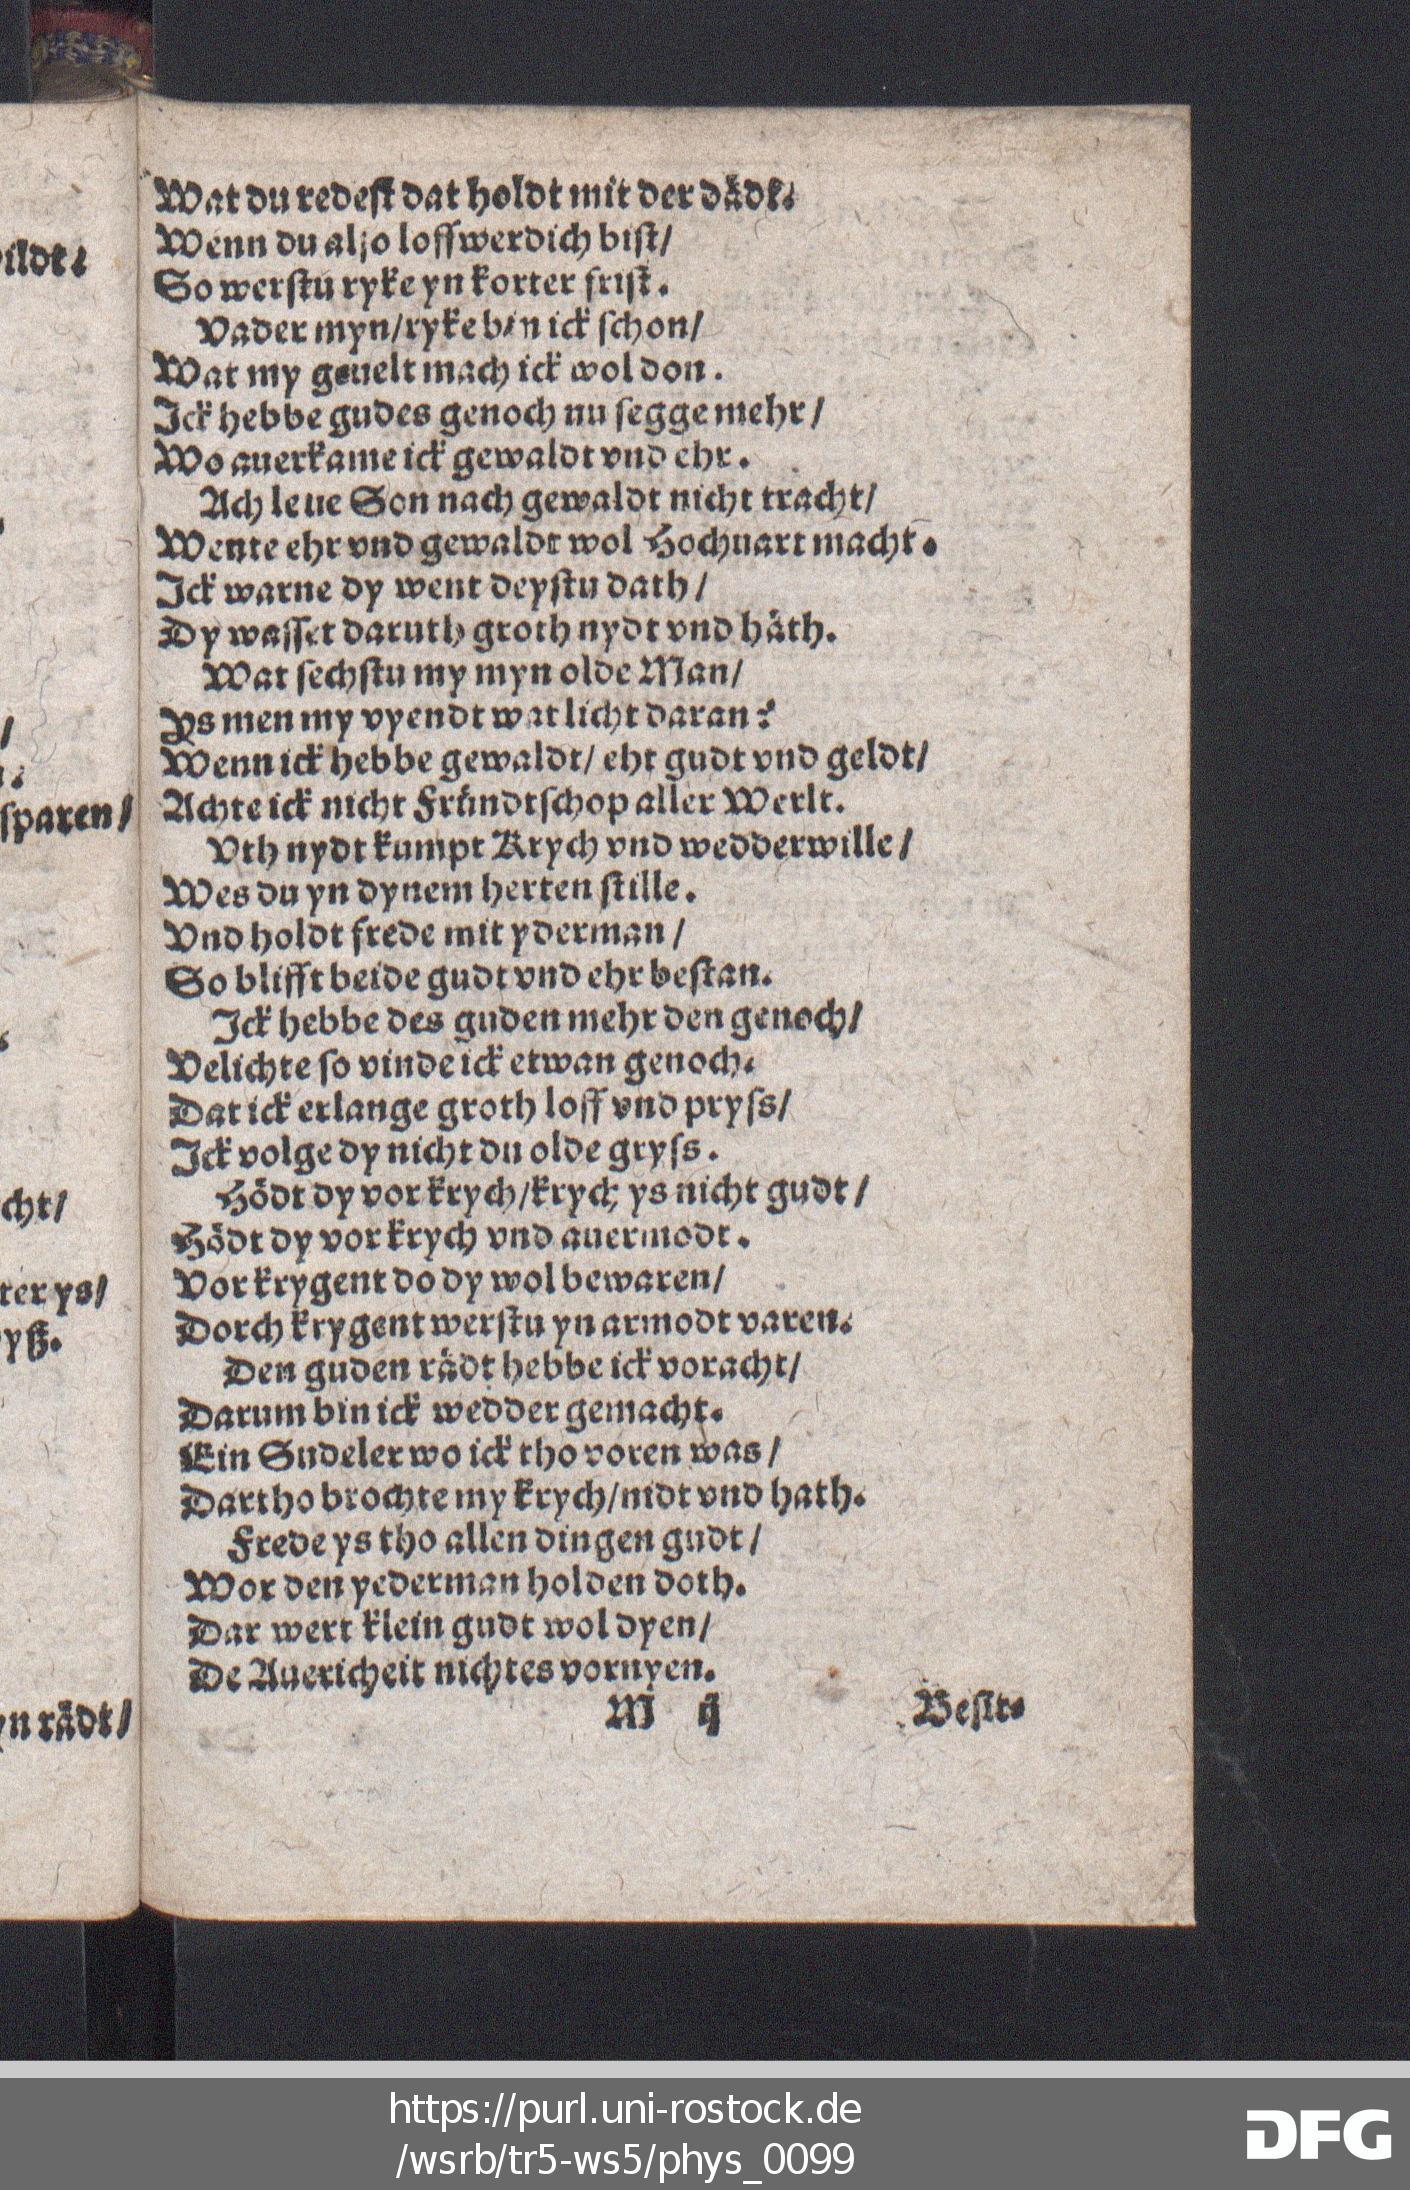 Wat du redest dat holdt mit der dådt.
Wenn du also loffwerdich bist/
So werstu ryke yn korter frist.
Vader myn/ryke bin ick schon/
Wat my geuelt mach ick wol don.
Ick hebbe gudes genoch nu segge mehr/
Wo auerkame ick gewaldt vnd ehr.
Ach leue Son nach gewaldt nicht tracht/
Wente ehr vnd gewaldt wol Hochuart macht.
Ick warne dy went deystu dath/
Dy wasset daruth groth nydt vnd håth.
Wat sechstu my myn olde Man/
Ys men my vyendt wat licht daran?
Wenn ick hebbe gewaldt/ ehr gudt vnd geldt/
Achte ick nicht Fründtschop aller Werlt.
Vth nydt kumpt Krych vnd wedderwille/
Wes du yn dynem herten stille.
Vnd holdt frede mit yderman/
So blifft beide gudt vnd ehr bestan.
Ick hebbe des guden mehr den genoch/
Velichte so vinde ick etwan genoch.
Dat ick erlange groth loff vnd pryss/
Ick volge dy nicht du olde gryss.
Hödt dy vor krych/krych ys nicht gudt/
Hödt dy vor krych vnd auermodt.
Vor krygent do dy wol bewaren/
Dorch krygent werstu yn armodt varen.
Den guden rådt hebbe ick voracht/
Darum bin ick wedder gemacht.
Ein Sudeler wo ick tho voren was/
Dartho brochte my krych/nidt vnd hath.
Frede ys tho allen dingen gudt/
Wor den yederman holden doth.
Dar wert klein gudt wol dyen/
De Auericheit nichtes vornyen.
M ij Besit.
ildt.
sparen/
cht/
ter ys/
yß.
yn rådt/
https://purl.uni-rostock.de
/wsrb/tr5-ws5/phys_0099
DFG